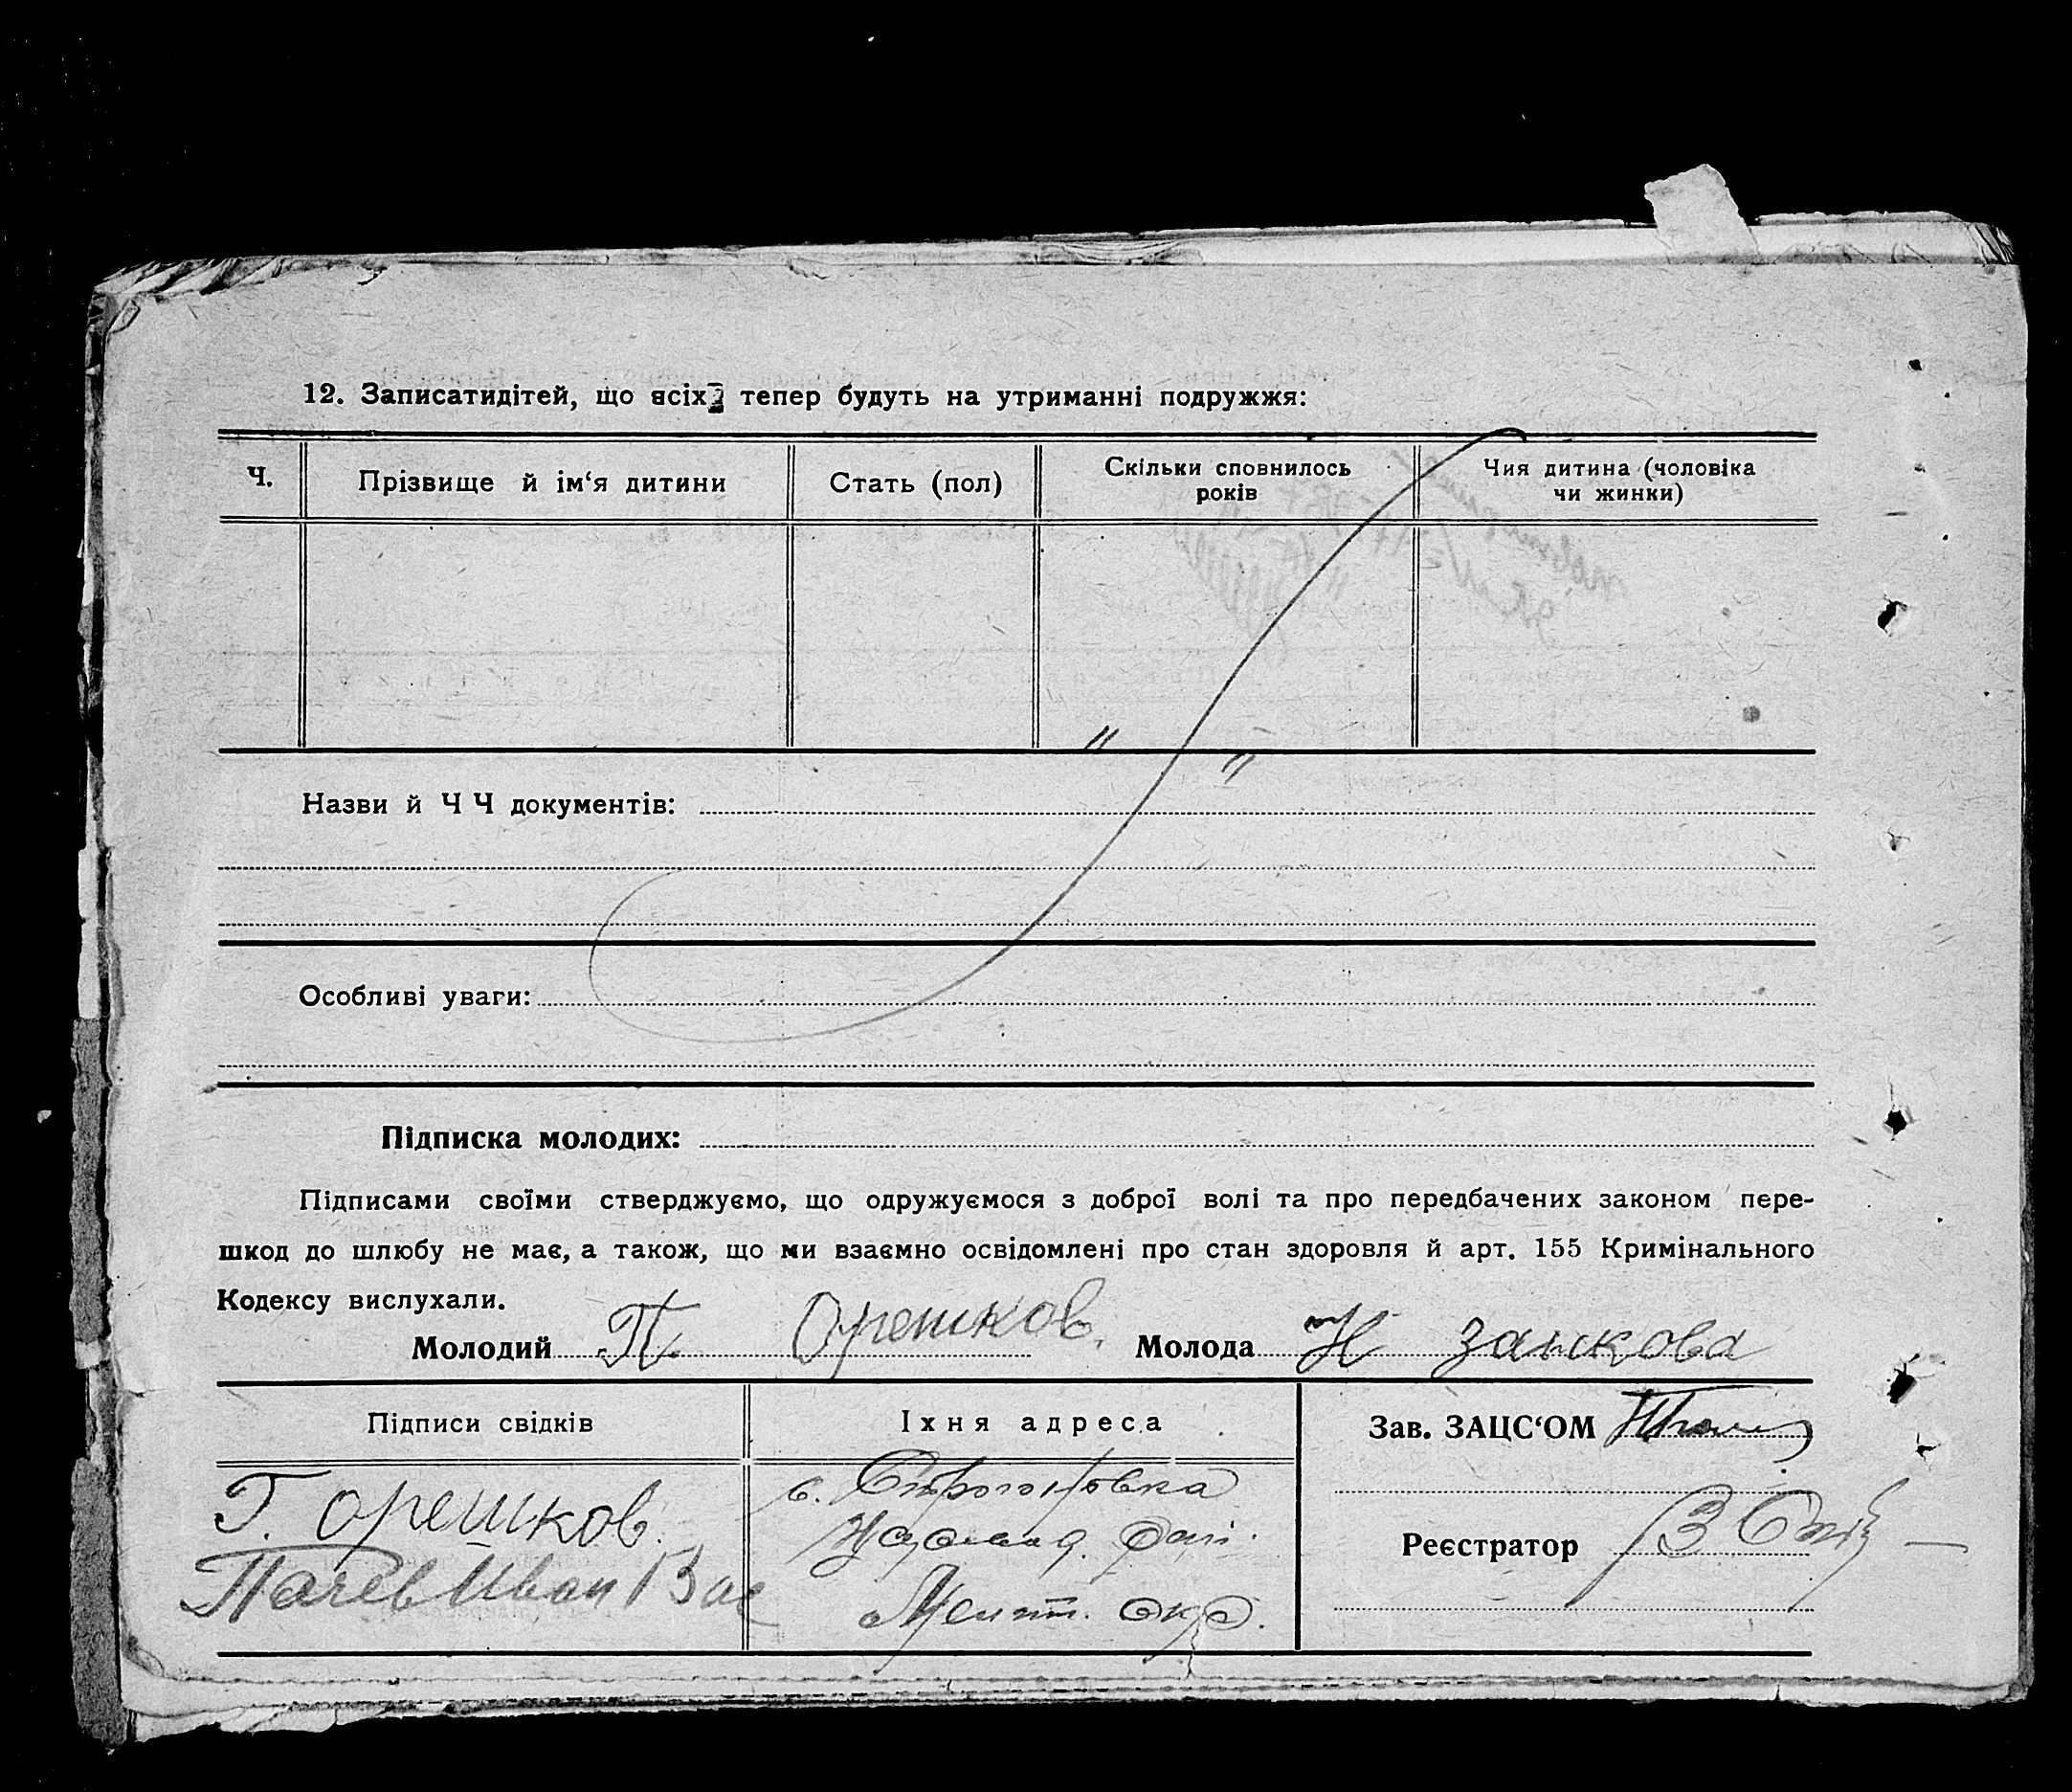 12. Записатидітей, що всіх тепер будуть на утриманні подружжя:
Ч.
Прізвище й ім‘я дитини
Стать (пол)
Скільки сповнилось
років
Чия дитина (чоловіка
чи жинки)
"
"
Назви й Ч Ч документів:
Особливі уваги:
Підписка молодих:
Підписами своїми стверджуємо, що одружуємося з доброї волі та про передбачених законом пере-
шкод до шлюбу не має, а також, що ми взаємно освідомлені про стан здоровля й арт. 155 Кримінального
Кодексу вислухали.
Молодий П. Орешков. Молода Н
Підписи свідків
Їхня адреса
Зав. ЗАЦС‘ОМ
Г. Орешков.
Пачев Иван Вас
с. Строгоновка
Мелит. окр.
Реєстратор